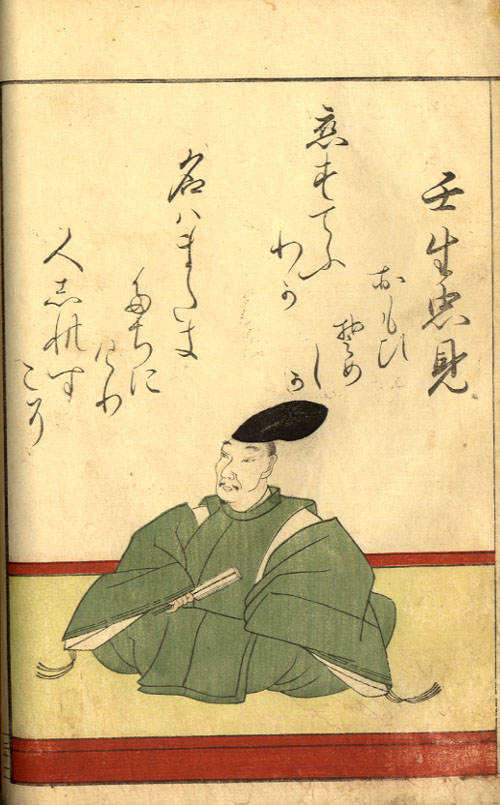 壬生忠見
恋すてふ
わか
名ハまたき
たちに
けり
人しれす
こそ
おもひ
そめ
しか